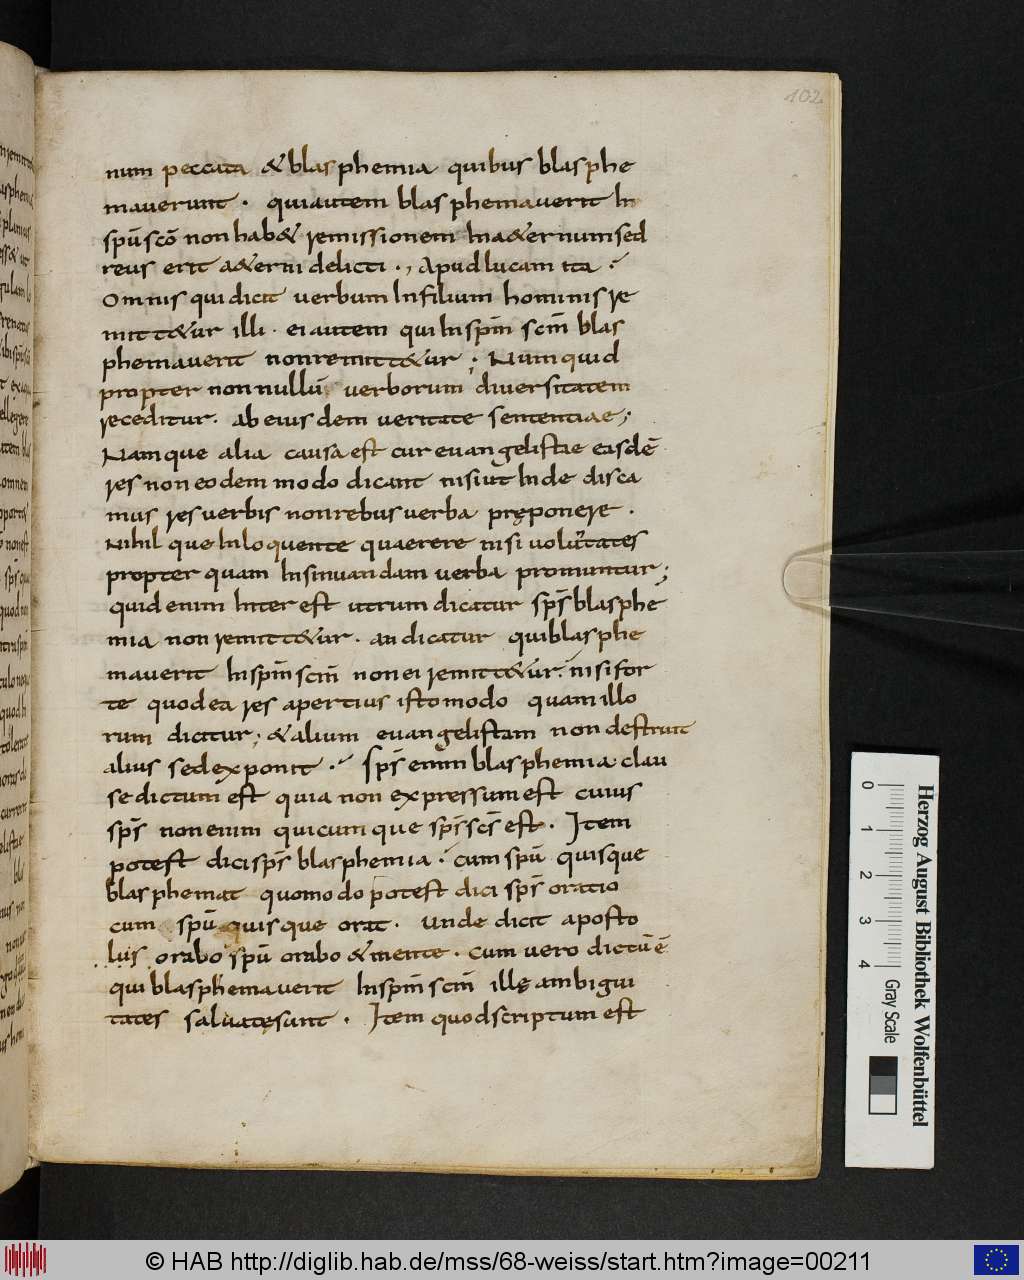 102
num peccata & blasphemia quibus blasphe
mauerunt · quiautem blasphemauerit in
spū scō non hab& remissionem in a&ernum sed
reus erit a&erni delicti ·, Apud lucam ita ·
Omnis qui dicit uerbum in filium hominis re
mitt&ur illi · ei autem qui in spm̄ scm̄ blas
phemauerit non remitt&ur ; Numquid
propter nonnullū uerborum diuersitatem
receditur · ab eiusdem ueritate sententiae ;
Namque alia causa est cur euangelistae eisdē
res non eodem modo dicant nisi ut inde disca
mus res uerbis non rebus uerba pręponere ·
Nihil que in loquente quaerere nisi uolūtates
propter quam insinuandam uerba promuntur ;
quid enim interest utrum dicatur sps̄ blasphe
mia non remitt&ur · an dicatur qui blasphe
mauerit in spm̄ scm̄ non ei remitt&ur · nisi for
te quod ea res apertius isto modo quam illo
rum dicitur ; & alium euangelistam non destruit
alius sed exponit · sps̄ enim blasphemia clau
se dictum est quia non expressum est cuius
sps̄ non enim quicumque sps̄ scs̄ est · Item
potest dici sps̄ blasphemia · cum spū quisque
blasphemat quomodo potest dici sps̄ oratio
cum spū quisque orat · unde dicit aposto
lus orabo spū orabo & mente · cum uero dictū ē
qui blasphemauerit in spm̄ scm̄ illę ambigui
tates saluatę sunt · Item quod scriptum est
0 1 2 3 4
Gray Scale
Herzog August Bibliothek Wolfenbüttel
© HAB http://diglib.hab.de/mss/68-weiss/start.htm?image=00211